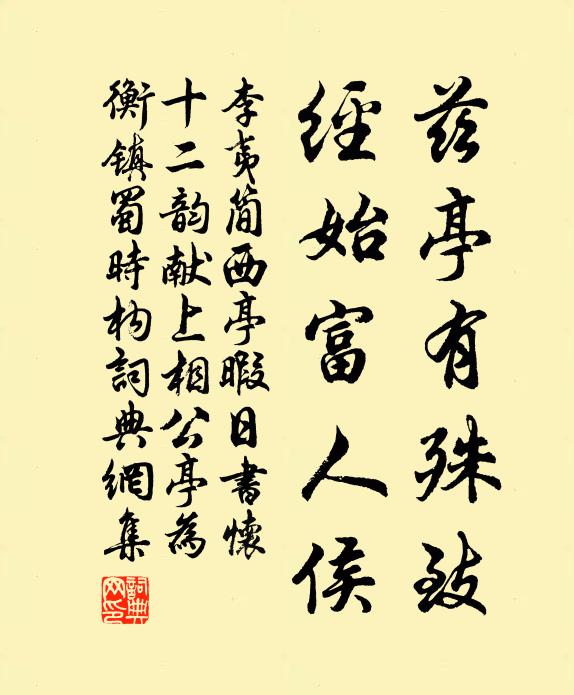 茲亭有殊致
經始富人侯
李夷简西亭暇日書懷
十二韵献上相公亭為
衡鎮蜀時构詞典網集
詞典网印